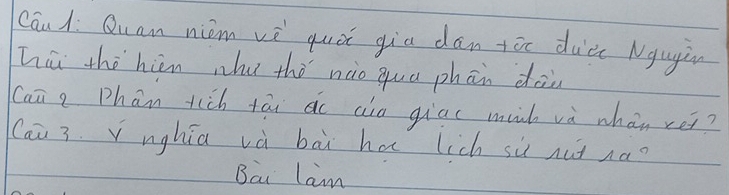 Câu 1: Quan niệm về quốc gia dân tộc được Nguyễn
Trãi thể hiện như thế nào qua phần đầu
Câu 2 Phân tích tội ác của giặc minh và nhận xét?
Câu 3. Ý nghĩa và bài học lịch sử rút ra?
Bài làm